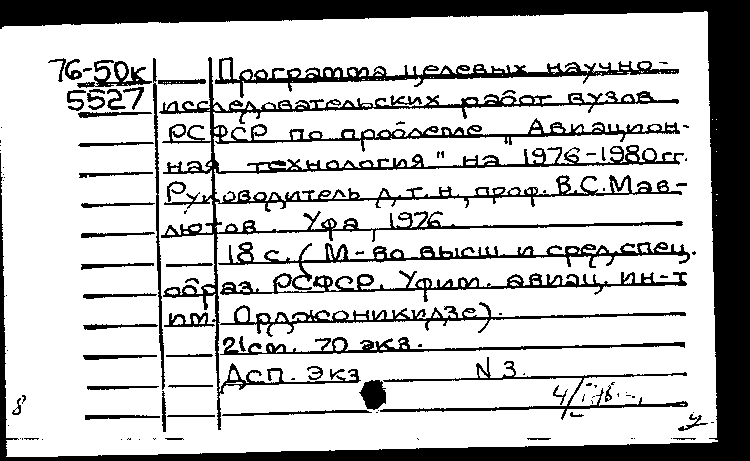 76-50к Программа целевых научно-
5527 исследовательских работ вузов
РСФСР по проблеме "Авиацион-
ная технология" на 1976-1980 гг.
Руководитель д.т.н, проф. В.С.Мав-
лютов. Уфа, 1976.
18 с. (М-во высш и сред, спец.
образ. РСФСР. Уфим. авиац. ин-т
им. Орджоникидзе).
21 см. 70 экз.
Дсп. Экз N 3.
8